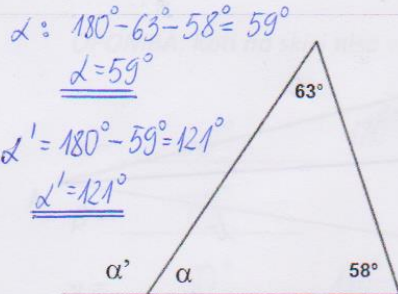 α: 180°-63°-58°=59°
α=59°
α'=180°-59°=121°
α'=121°
63°
α' α 58°